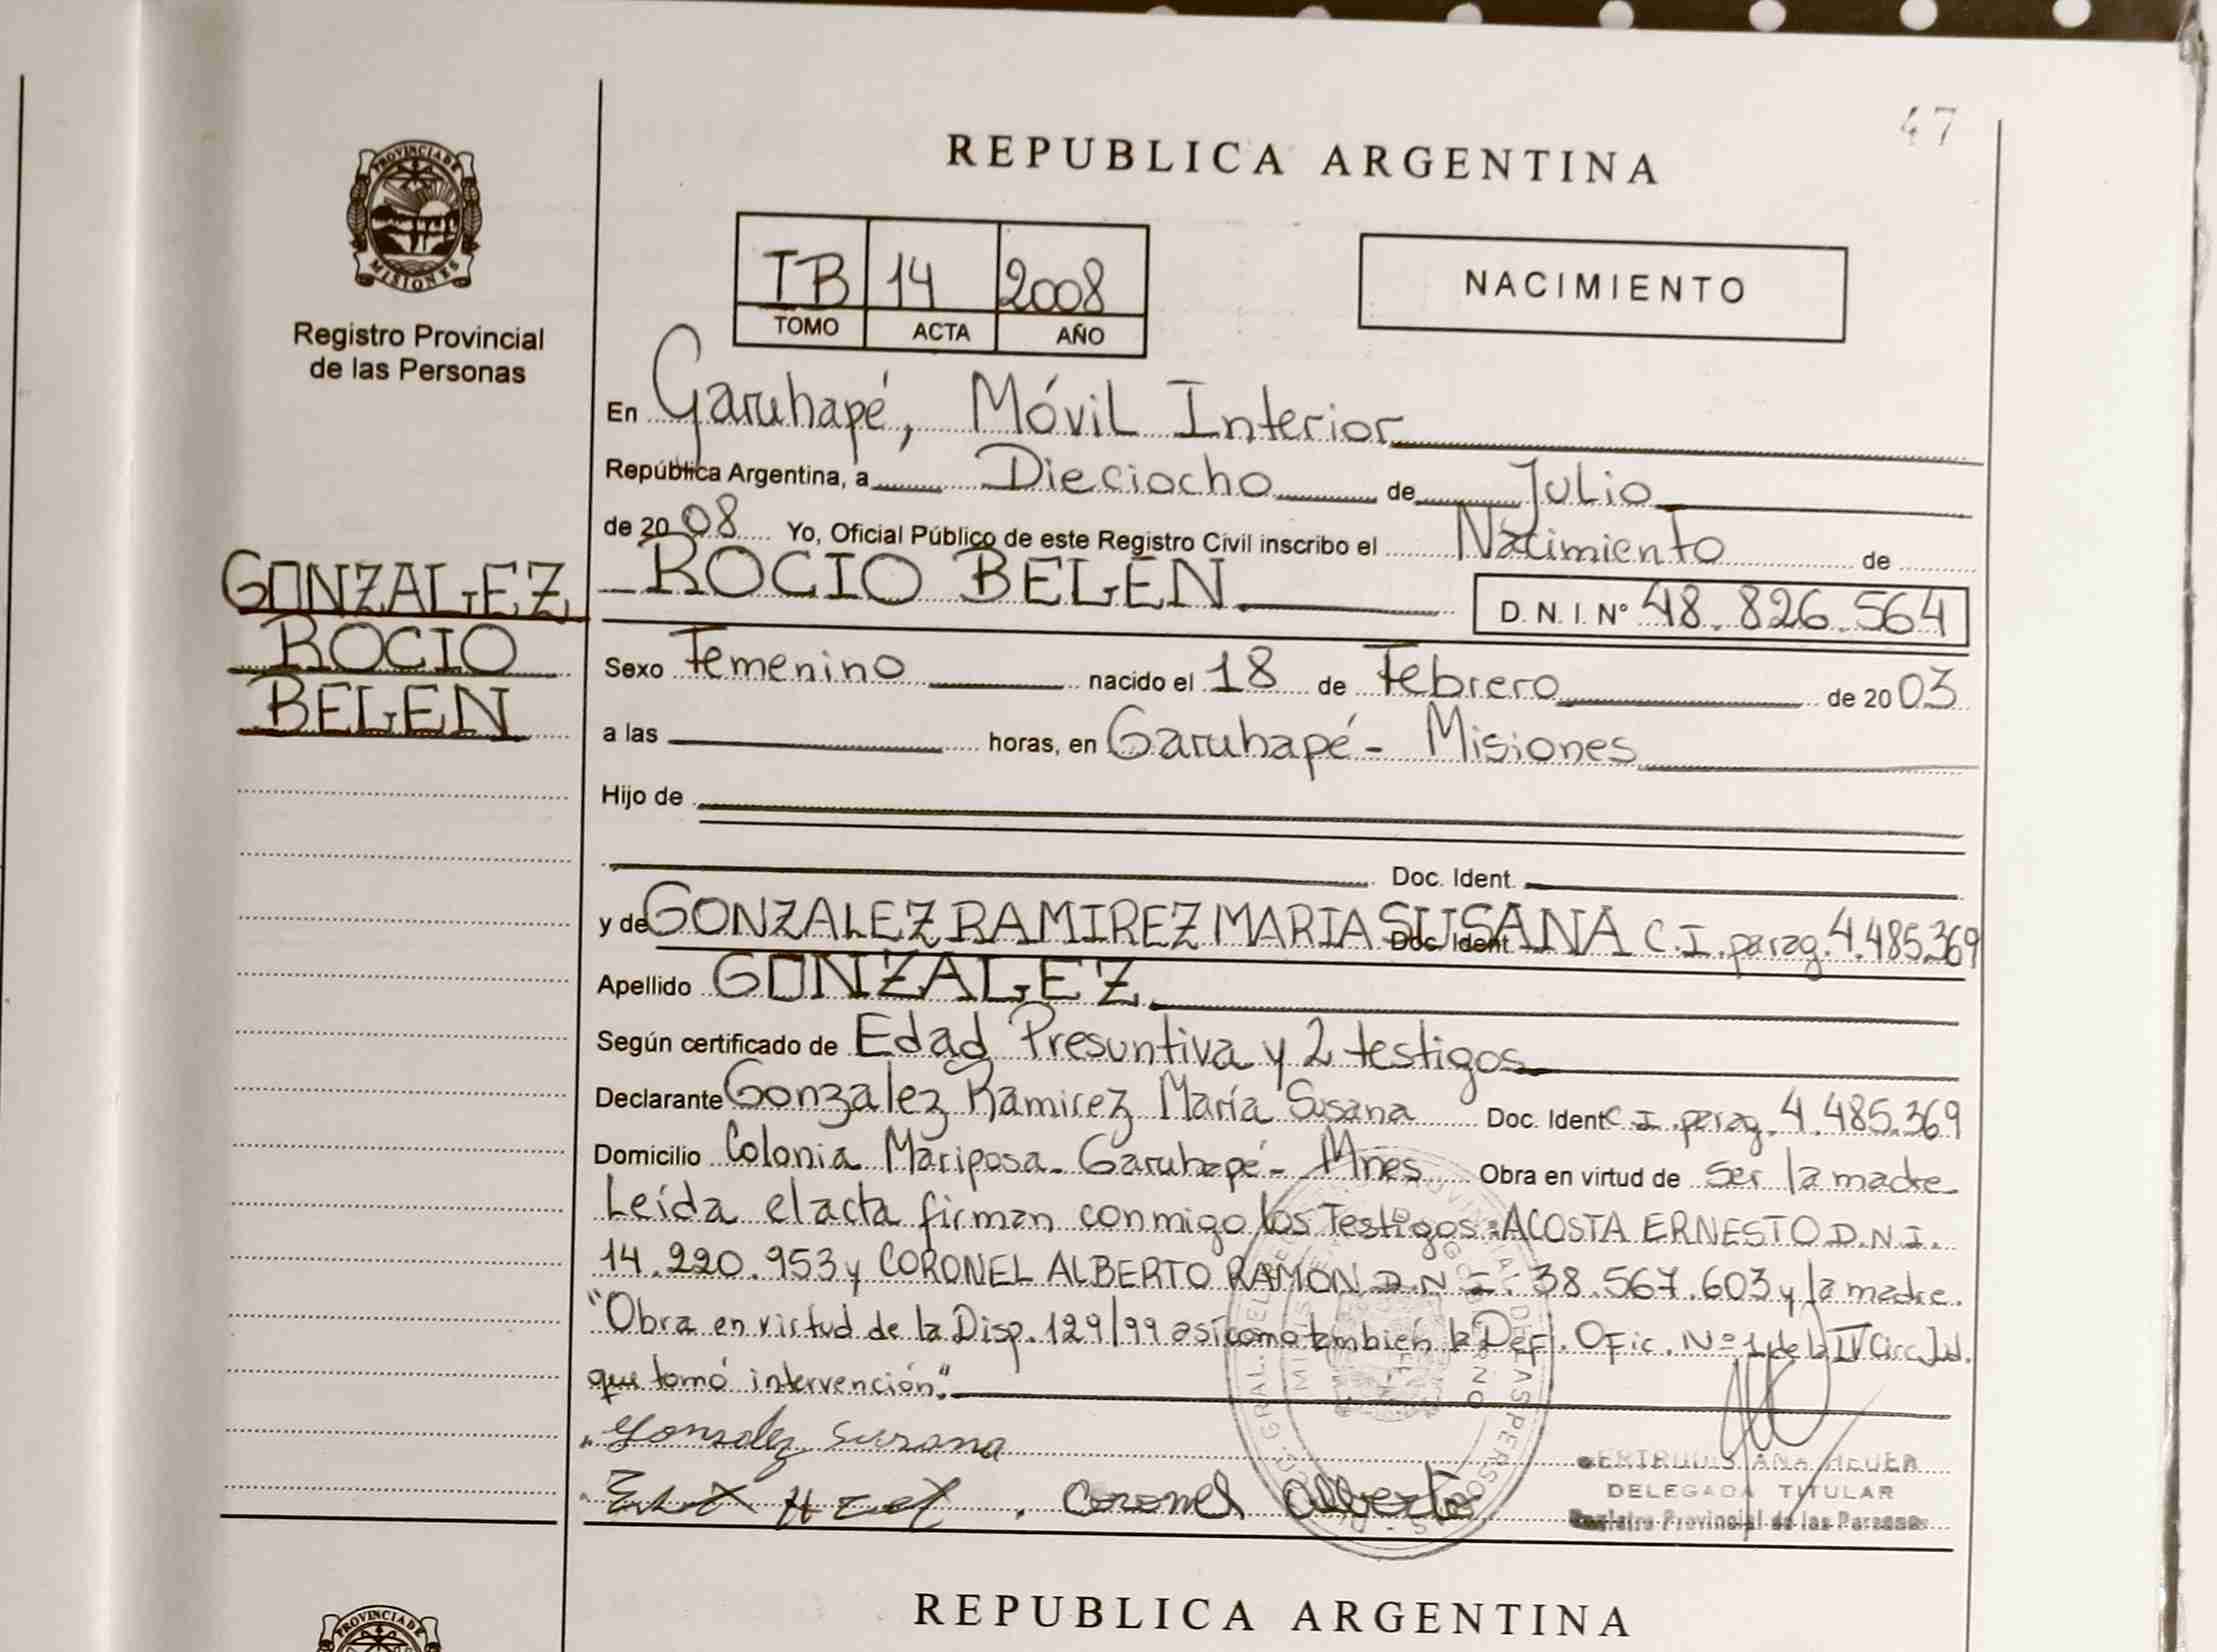 47
REPUBLICA ARGENTINA
PROVINCIA DE
MISIONES
Registro Provincial
de las Personas
TB 14 2008
TOMO ACTA AÑO
NACIMIENTO
En Garuhapé, Móvil Interior
República Argentina, a Dieciocho de Julio
de 2008 Yo, Oficial Público de este Registro Civil inscribo el Nacimiento de
GONZALEZ
ROCIO
BELEN
ROCIO BELEN D. N. I. Nº 48.826.564
Sexo Femenino nacido el 18 de Febrero de 2003
a las horas, en Garuhapé - Misiones
Hijo de
Doc. Ident.
y de GONZALEZ RAMIREZ MARIA SUSANA Doc. Ident. C.I. parag. 4.485.369
Apellido GONZALEZ
Según certificado de Edad Presuntiva y 2 testigos
Declarante Gonzalez Ramirez María Susana Doc. Ident C.I. parag. 4.485.369
Domicilio Colonia Mariposa - Garuhapé - Mnes Obra en virtud de ser la madre
Leída el acta firman conmigo los Testigos: ACOSTA ERNESTO D.N.I.
14.220.953 y CORONEL ALBERTO RAMON D.N.I. 38.567.603 y la madre.
"Obra en virtud de la Disp. 129/99 así como también la Def. Ofic. Nº 1 de la IV Circ. Jud.
que tomó intervención."
Gonzalez Susana
Coronel Alberto
ANA
DELEGADA TITULAR
Registro Provincial de las Personas
REPUBLICA ARGENTINA
PROVINCIA DE